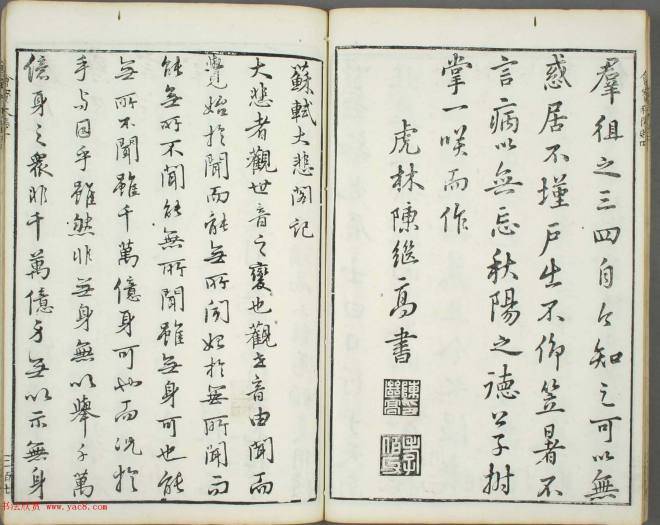 羣狙之三四自今知之可以無
惑居不墐戶出不仰笠暑不
言病以無忘秋陽之德公子拊
掌一咲而作
虎林陳繼高書
蘇軾大悲閣記
大悲者觀世音之變也觀世音由聞而
覺始於聞而能無所聞始於無所聞而
能無所不聞能無所聞雖無身可也能
無所不聞雖千萬億身可也而況於
手與目乎雖然非無身無以舉千萬
億身之衆非千萬億身無以示無身
书法欣赏 www.yac8.com